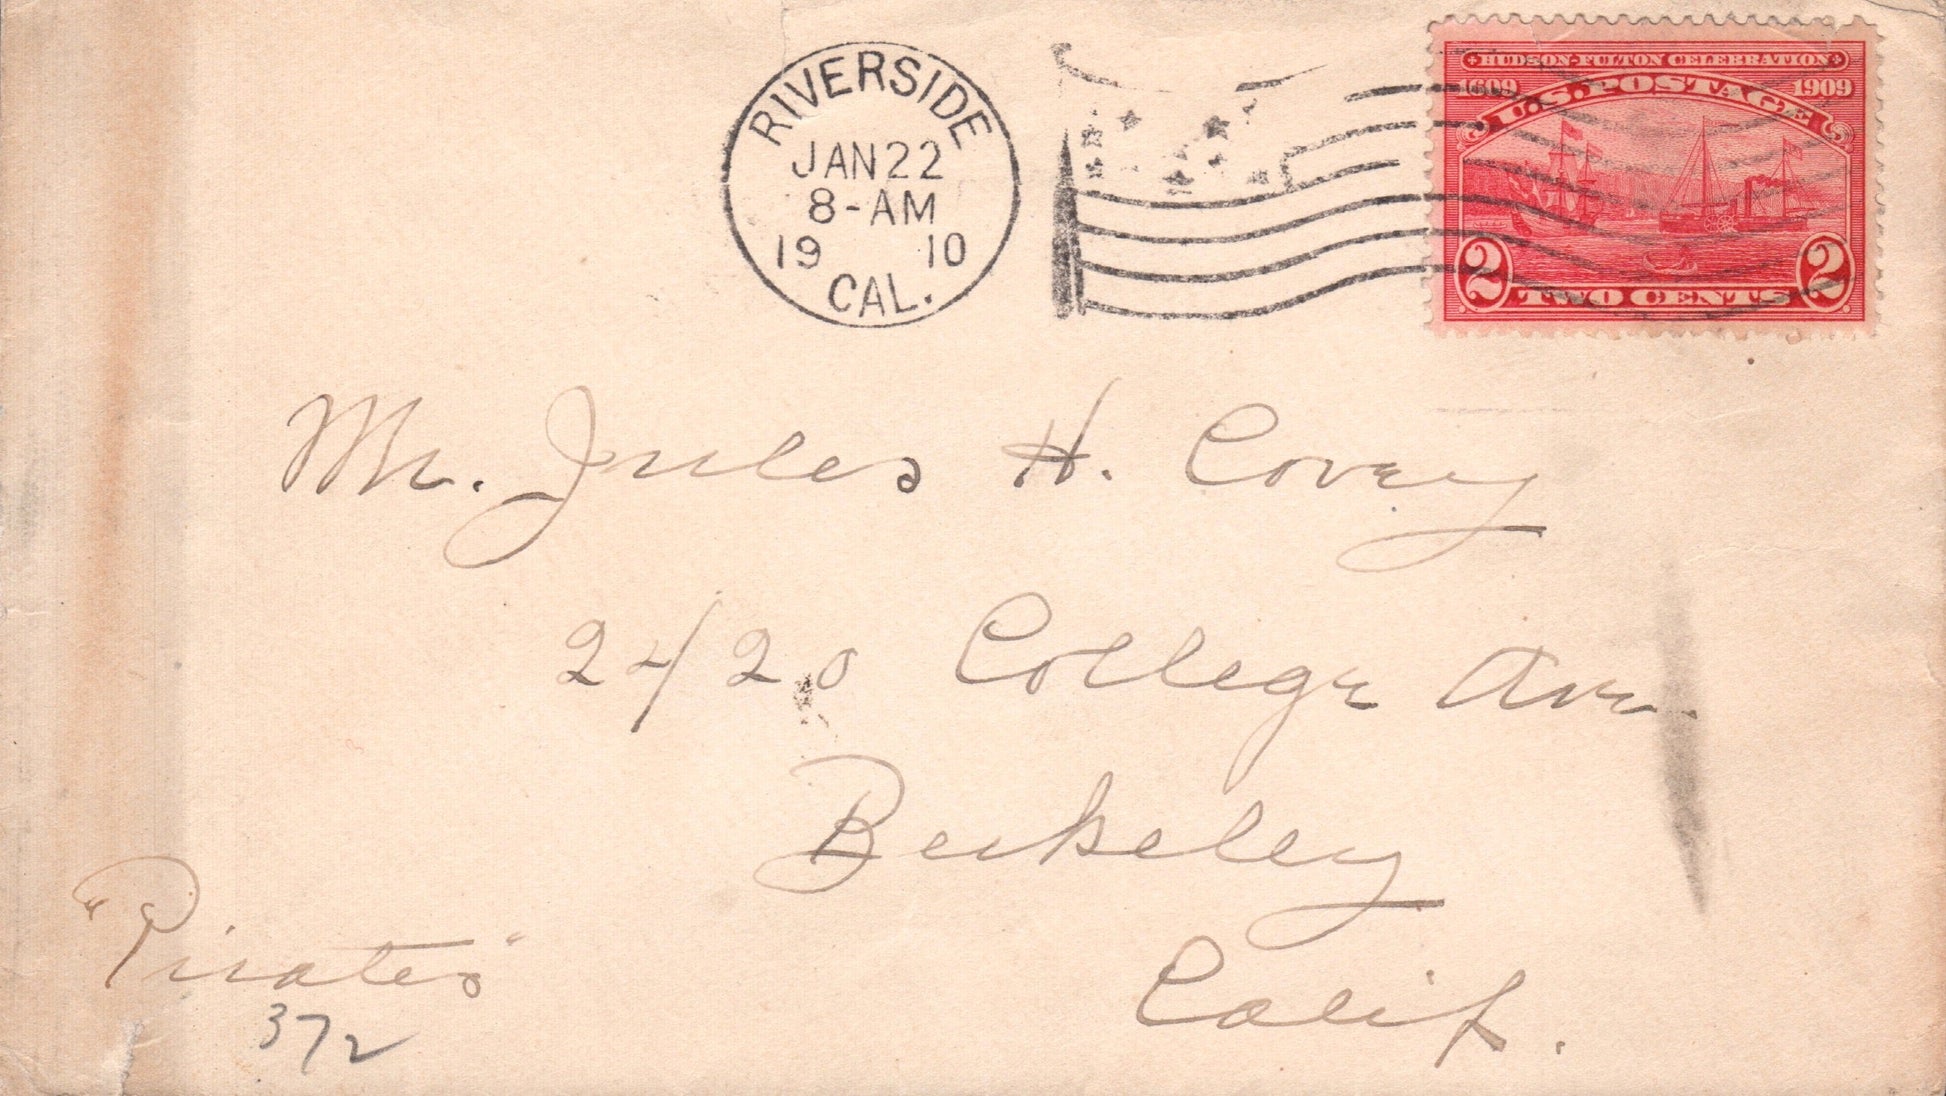 RIVERSIDE
JAN 22
8-AM
19 10
CAL.
HUDSON-FULTON CELEBRATION
1609 1909
U.S. POSTAGE
2 TWO CENTS 2
Mr. Jules H. Covey
2420 College Ave.
Berkeley
Calif.
"Pirates"
372